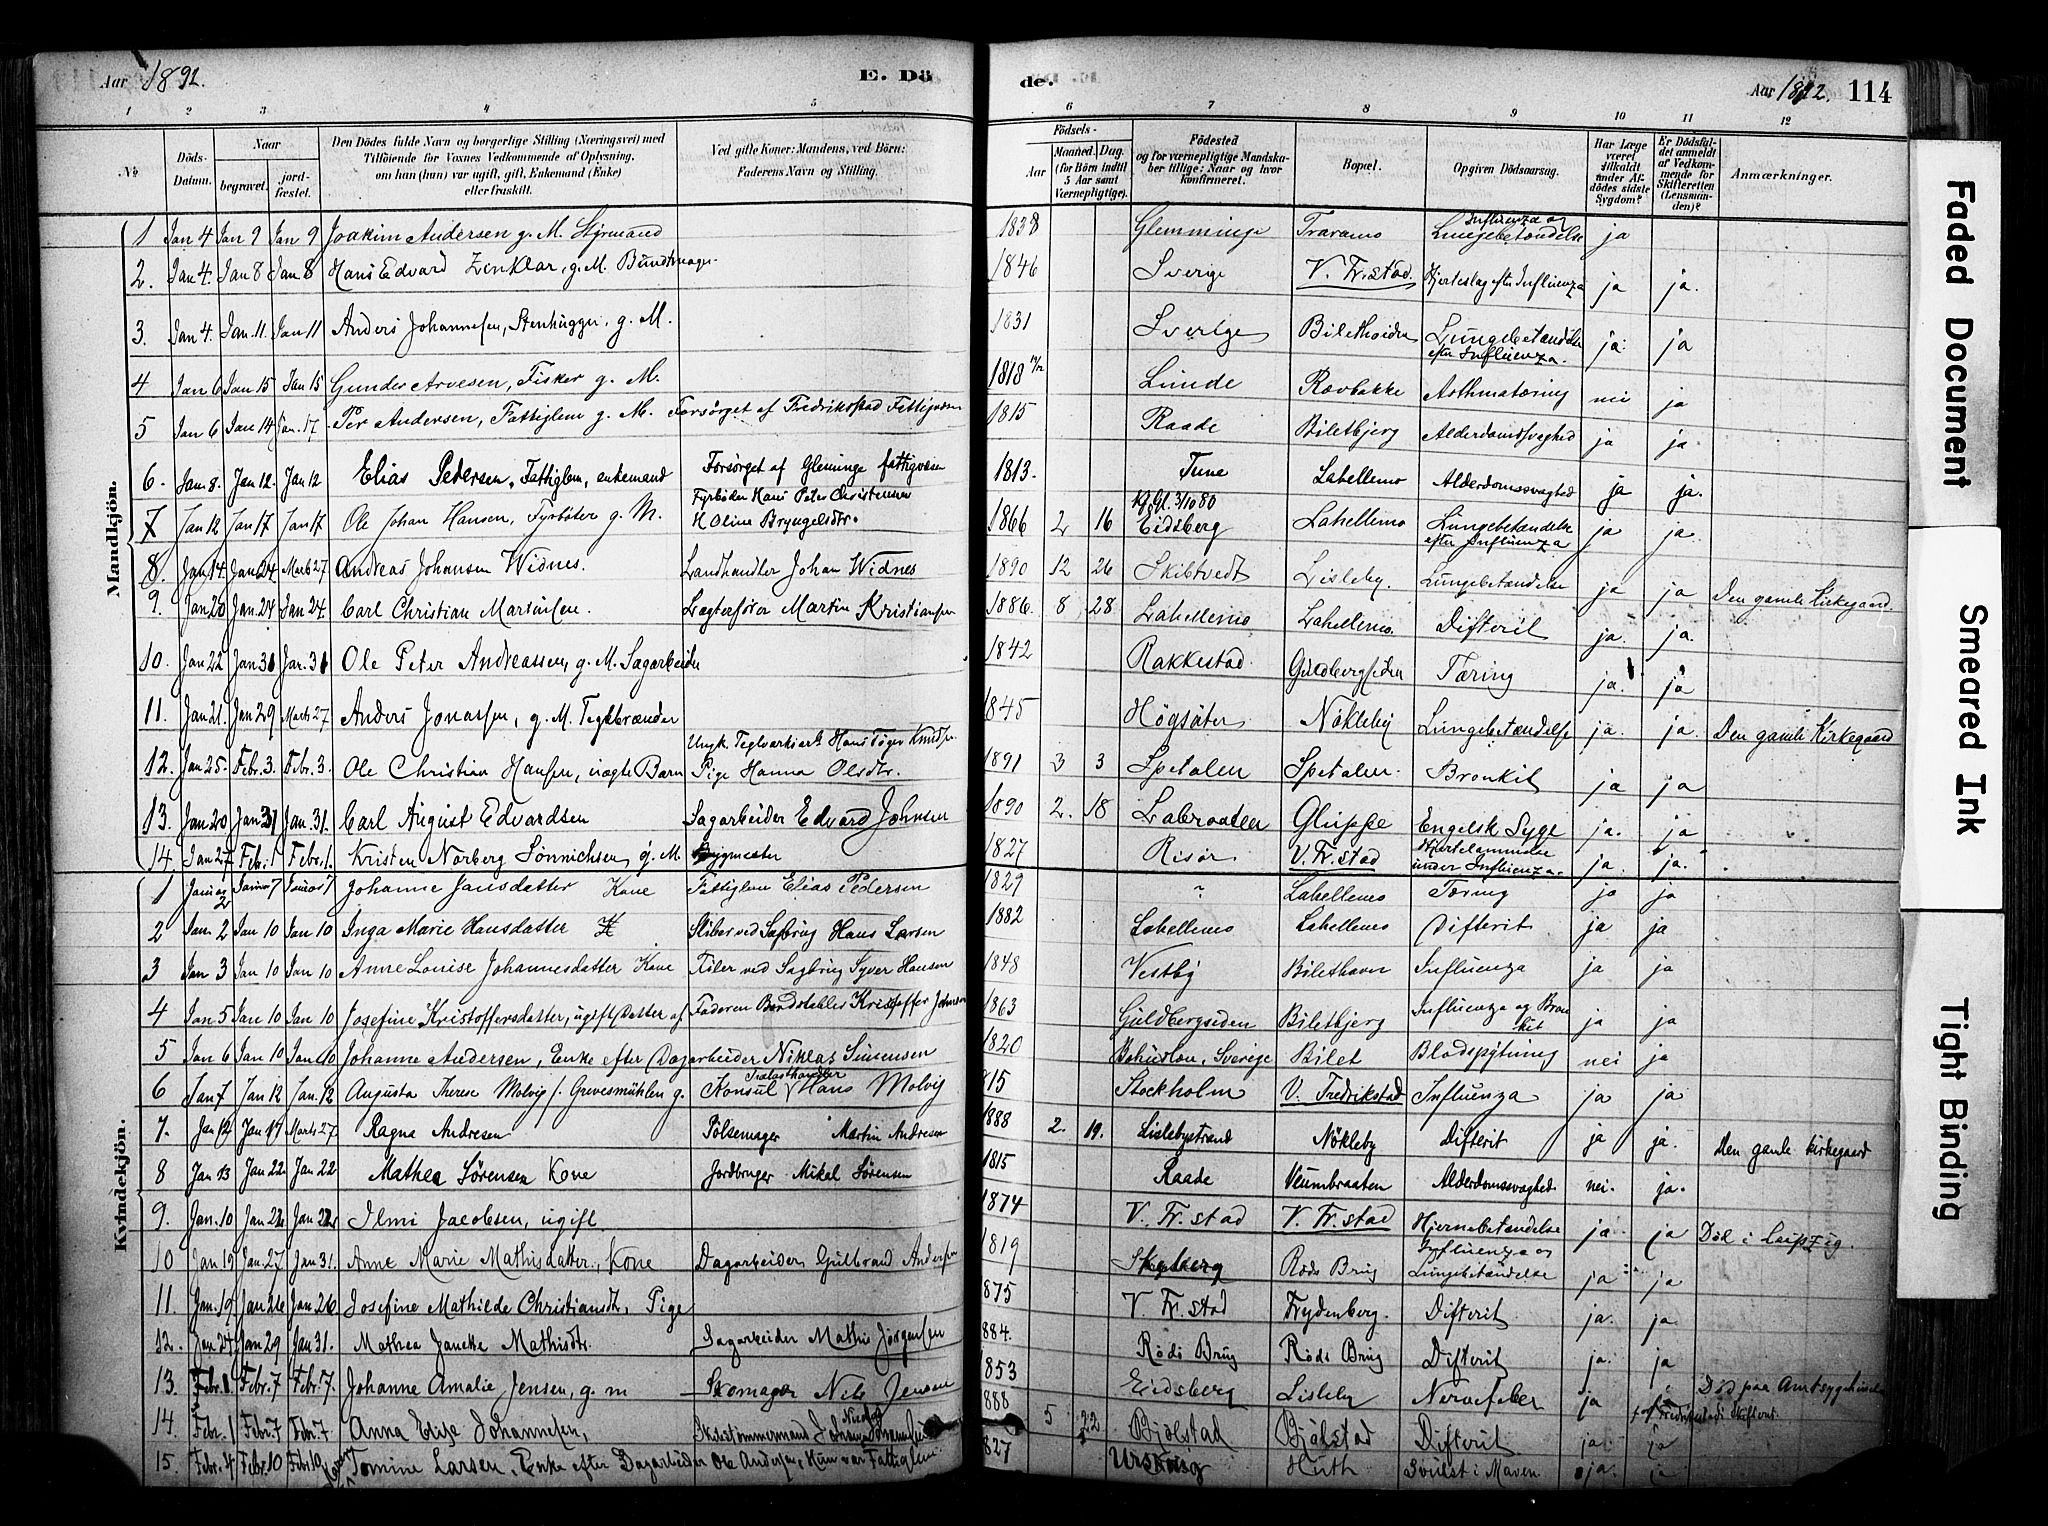 Aar 1892.
E. Dö
1 2 3 4 5
№
Döds-Datum.
Naar
begravet.
jord-fæstet.
Den Dödes fulde Navn og borgerlige Stilling (Næringsvei) med Tilföiende for Voxnes Vedkommende af Oplysning, om han (hun) var ugift, gift, Enkemand (Enke) eller fraskilt.
Ved gifte Koner: Mandens, ved Börn: Faderens Navn og Stilling.
Mandkjön.
1 Jan 4 Jan 9 Jan 9 Joakim Andersen g. M. Styrmand
2. Jan 4. Jan 8 Jan 8 Hans Edvard Zinklar, g. M. Bundtmager
3. Jan 4. Jan. 11 Jan 11 Anders Johannesen, Stenhugger, g. M.
4 Jan 6 Jan 15 Jan 15 Gunder Arvesen, Fisker g. M.
5 Jan 6 Jan 14 Jan. 17 Per Andersen, Fattiglem g. M. Forsørget af Fredriksstad Fattigvæsen
6. Jan. 8. Jan 12. Jan 12 Elias Pedersen, Fattiglem, enkemand Forsørget af Gleminge fattigvæsen
7 Jan 12 Jan 17 Jan 17 Ole Johan Hansen, Fyrbøter g. M. Fyrbøder Hans Peter Christensen
H Oline Bryngelsdtr.
8. Jan 14. Jan 24 Marts 27 Andreas Johansen Widnes. Landhandler Johan Widnes
9. Jan 20 Jan. 24 Jan 24. Carl Christian Martinsen. Lægterfører Martin Kristiansen
10. Jan 22 Jan 31 Jan. 31 Ole Peter Andreassen, g. M. Sagarbeider
11. Jan 21. Jan 29 Marts 27 Anders Jonassen, g. M. Teglbrænder
12. Jan 25. Febr. 3. Febr. 3. Ole Christian Hansen, uægte Barn Ungk. Teglværksarb Hans Tøger Knudsen
Pige Hanna Olsdtr.
13. Jan 20 Jan 31 Jan. 31. Carl August Edvardsen Sagarbeider Edvard Johnsen
14. Jan 27 Feb. 1 Febr. 1. Kristen Norberg Sønnichsen g. M. Bygmester
Kvindekjön.
1 Januar 2 Januar 7 Januar 7 Johanne Jansdatter Kone Fattiglem Elias Pedersen
2 Jan. 2 Jan 10 Jan 10 Inga Marie Hansdatter Sliber ved Sagbrug Hans Larsen
3 Jan 3 Jan 10 Jan 10 Anne Louise Johannesdatter Kone Filer ved Sagbrug Syver Hansen
4 Jan 5 Jan 10 Jan 10 Josefine Kristoffersdatter, ugift Datter af Faderen Bordstabler Kristoffer Johnsen
5 Jan 6 Jan 10 Jan 10 Johanne Andersen, Enke efter Dagarbeider Niklas Simensen
6 Jan 7 Jan 12 Jan. 12 Augusta Therese Molvig f. Grevesmühlen g. Konsul Trælasthandler Hans Molvig
7. Jan 12 Jan 17 Marts 27 Ragna Andresen Pølsemager Martin Andresen
8 Jan 13 Jan 22 Jan 22 Mathea Sørensen Kone Jordbruger Mikal Sørensen
9. Jan. 10 Jan 22 Jan 22 Ilmi Jacobsen, ugift.
10 Jan 19 Jan. 27 Jan 31. Anne Marie Mathisdatter, Kone Dagarbeider Gulbrand Andersen
11. Jan. 19 Jan 26 Jan 26 Josefine Mathilde Christiansdt. Pige
12. Jan 24 Jan 29 Jan 31. Mathea Janeke Mathisdt. Sagarbeider Mathis Jørgensen
13. Febr. 1. Febr. 7 Febr. 7. Johanne Amalie Jensen, g. m Skomager Nils Jensen
14. Febr. 1 Feb. 7 Febr. 7 Anna Elise Johannesen, Skibstømmermand Johan Johannesen
15. Febr. 4 Feb. 10 Febr. 10 Tomine Larsen, Enke efter Dagarbeider Ole Andersen, Hun var Fattiglem
de.
Aar 1892. 114
6 7 8 9 10 11 12
Födsels-
Aar
Maaned. Dag.
(for Börn indtil 5 Aar samt Værnepligtige).
Födested og for værnepligtige Mandskaber tillige: Naar og hvor konfirmeret.
Bopæl.
Opgiven Dödsaarsag.
Har Læge været tilkaldt under Afdödes sidste Sygdom?
Er Dödsfaldet anmeldt af Vedkommende for Skifteretten (Lensmanden)?
Anmærkninger.
1838 Glemminge Traramo Influenza og Lungebetændelse ja
1846 Sverige V. Fr.stad. Hjerteslag eft. Influenza ja ja.
1831 Sverige Bilethoiden Lungebetændelse efter Influenza. ja. ja
1818 Lunde Rævbakke Asthmatæring nei ja
1815 Raade Biletbjerg Alderdomssvaghed ja ja.
1813. Tune Lahellemo Alderdomssvaghed ja ja.
Kf. Gl. 3/10 80
1866 2 16 Eidsberg Lahellemo Lungebetændelse efter Influenza ja ja.
1890 12 26 Skibtvedt Lisleby. Lungebetændelse ja ja Den gamle Kirkegaard.
1886. 8 28 Lahellemo Lahellemo. Difterit ja. ja.
1842 Rakkestad. Guldbergsiden Tæring ja. ja
1845 Högsäter Nökleby Lungebetændelse ja. ja. Den gamle Kirkegaard
1891 3 3 Spetalen Spetalen. Bronkit ja ja
1890 2. 18 Labraaten Gluppe Engelsk Syge ja. ja
1827 Risør V. Fr. stad Hjertelammelse under Influenza. ja. ja.
1829 ~ Lahellemo Tæring ja ja
1882 Lahellemo Lahellemo Difterit ja ja
1848 Vestby Bilethaven Influenza ja ja
1863 Guldbergsiden Biletbjerg Influenza og Bronkit ja ja
1820 Bohuslen, Sverige Bilet Blodspytning nei ja
815 Stockholm V. Fredrikstad Influenza ja ja
1888 2. 19. Lislebystrand Nökleby Difterit ja ja. Den gamle kirkegaard
1815 Raade Veumbraaten Alderdomssvaghed nei. ja.
1874 V. Fr. stad V. Fr. stad Hjernebetændelse ja. ja Död i Leipzig.
1819 Skjeberg Røds Brug Influenza og Lungebetændelse ja ja
875 V. Fr. stad Frydenberg. Difterit ja. ja.
884. Røds Brug Røds Brug Difterit ja. ja
853 Eidsberg Lisleby Nervefeber ja Død paa Amtssygehuset
888 5 22 Bjölstad Bjölstad Difterit ja. ja
827 Urskoug Huth Svulst i Maven ja. ja
Faded Document
Smeared Ink
Tight Binding